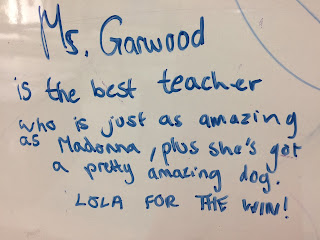 Ms. Garwood
is the best teacher
who is just as amazing
as Madonna, plus she's got
a pretty amazing dog.
LOLA FOR THE WIN!